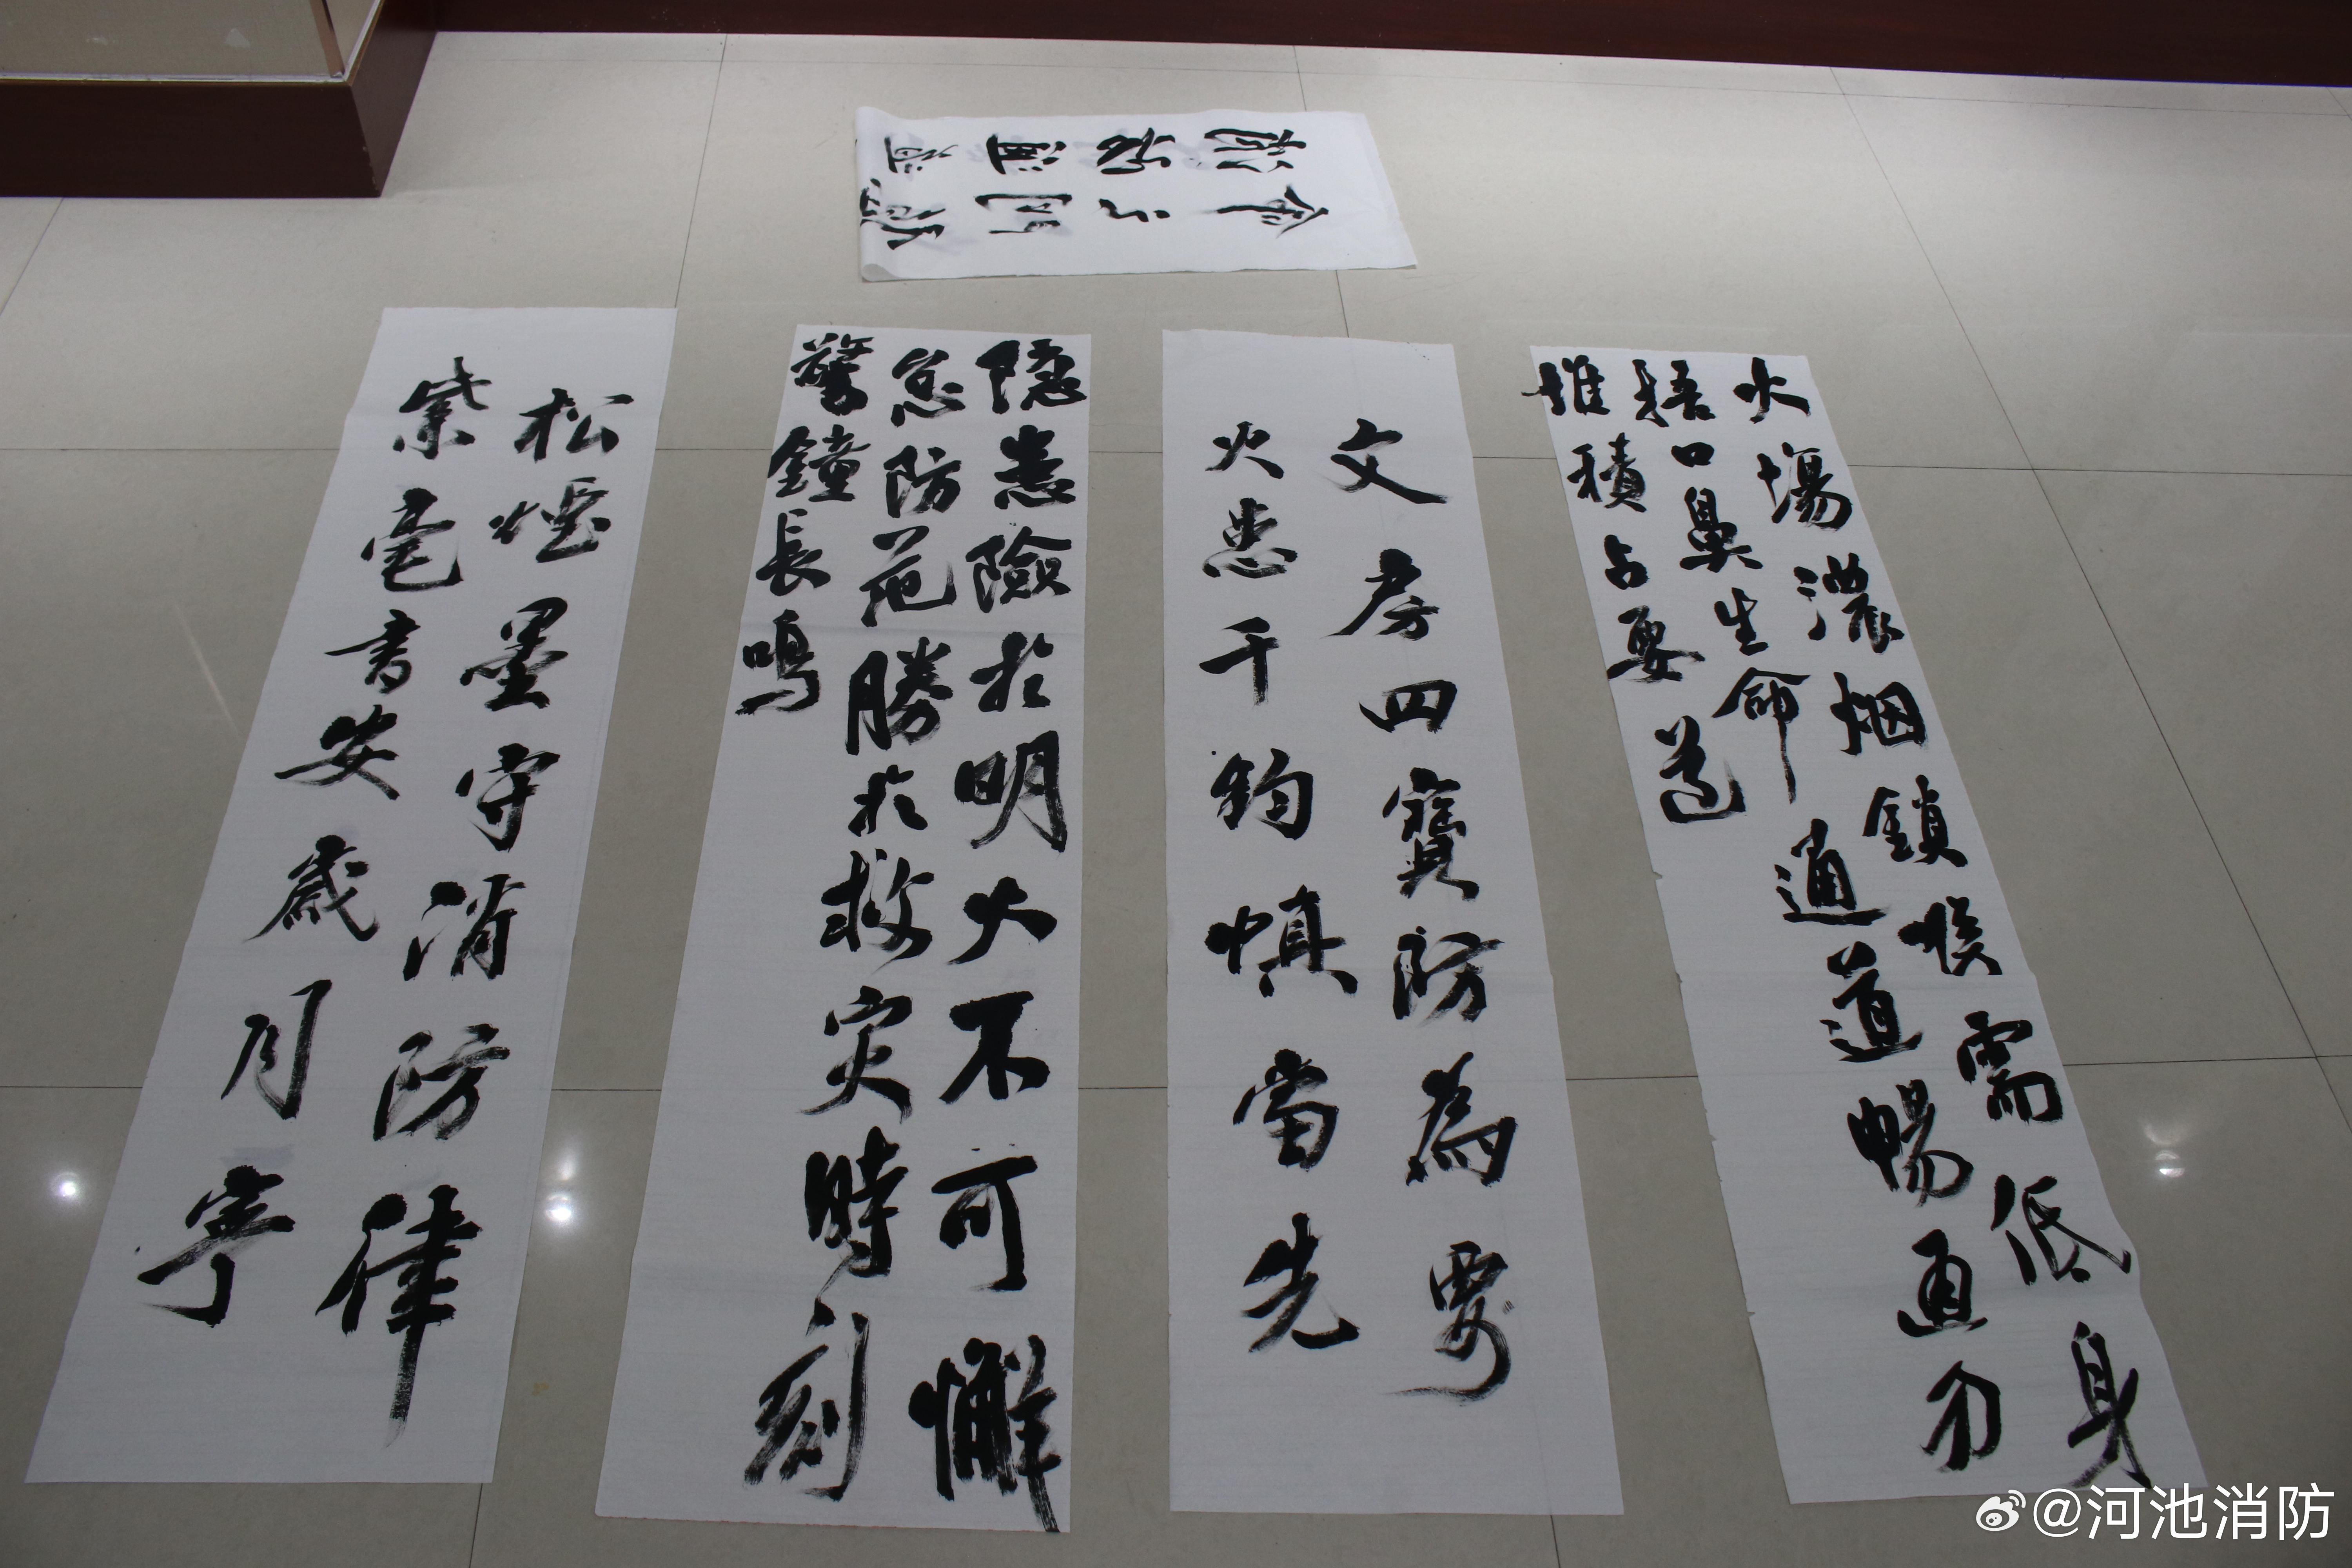 火場濃烟鎖喉需低身
捂口鼻生命通道暢通勿
堆積占要道
文房四寶防為要
火患千鈞慎當先
隐患險於明火不可懈
怠防范勝於救灾時刻
警鐘長鳴
松煙墨守消防律
紫毫書安歲月寧
@河池消防